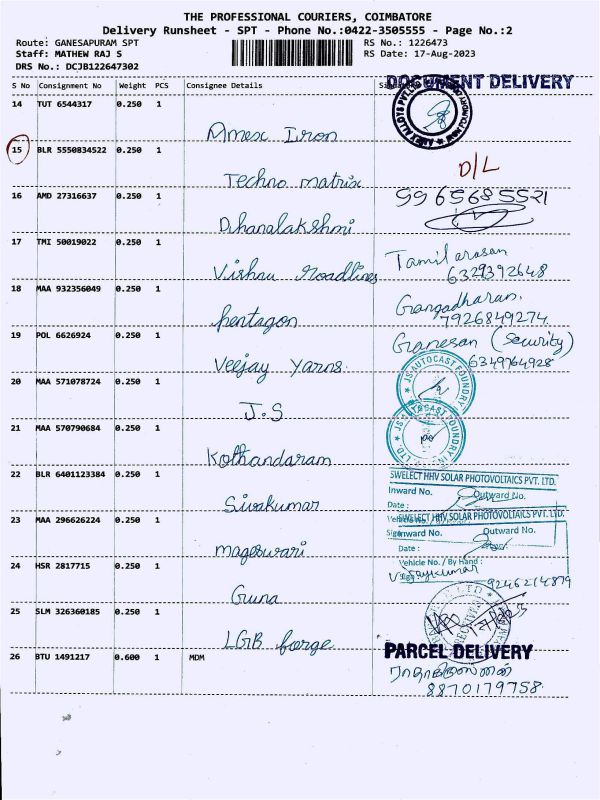 THE PROFESSIONAL COURIERS, COIMBATORE
Delivery Runsheet - SPT - Phone No.:0422-3505555 - Page No.:2
Route: GANESAPURAM SPT RS No.: 1226473
Staff: MATHEW RAJ S RS Date: 17-Aug-2023
DRS No.: DCJB122647302
S No Consignment No Weight PCS Consignee Details
DOCUMENT DELIVERY
14 TUT 6544317 0.250 1
Amex Iron
15 BLR 5550834522 0.250 1
D/L
Techno matrix
16 AMD 27316637 0.250 1 9965685521
Dhanalakshmi
17 TMI 50019022 0.250 1 Tamilarasan
Vishnu Roadlines 6329392648
18 MAA 932356049 0.250 1 Gangadharan.
Pentagon 7926849274
19 POL 6626924 0.250 1 Ganesan (Security)
Veejay Yarns. 6349764928
20 MAA 571078724 0.250 1 JS AUTOCAST FOUNDRY
J.S
21 MAA 570790684 0.250 1 JS AUTOCAST FOUNDRY
Kothandaram
22 BLR 6401123384 0.250 1 SWELECT HHV SOLAR PHOTOVOLTAICS PVT. LTD.
Inward No. Outward No.
Sivakumar Date :
23 MAA 296626224 0.250 1 SWELECT HHV SOLAR PHOTOVOLTAICS PVT. LTD.
Inward No. Outward No.
mageswari Date :
Vehicle No. / By Hand :
24 HSR 2817715 0.250 1 Vijaykumar
Guna 9246214879
25 SLM 326360185 0.250 1
LGB forge
PARCEL DELIVERY
26 BTU 1491217 0.600 1 MDM
8870179758